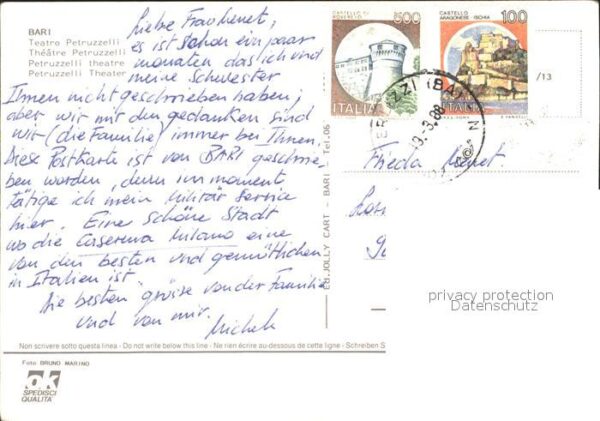 BARI
Teatro Petruzzelli
Théâtre Petruzzelli
Petruzzelli theatre
Petruzzelli Theater
Liebe Frau Menet,
es ist schon ein paar
monaten das ich und
meine Schwester
Ihnen nicht geschrieben haben,
aber wir mit den gedanken sind
wir (die Familie) immer bei Ihnen.
Diese Postkarte ist von BARI geschrie-
ben worden, denn im moment
tätige ich mein Militär Service
hier. Eine Schöne Stadt
wo die Caserma Milano eine
von den besten und gemütlichen
in Italien ist.
Die besten grüsse von der Familie
und von mir.
Michele
CASTELLO DI
ROVERETO
500
ITALIA
CASTELLO
ARAGONESE ISCHIA
100
ITALIA
/13
9.3.88
Frieda Menet
ED. JOLLY CART - BARI - Tel. 06
privacy protection
Datenschutz
Non scrivere sotto questa linea - Do not write below this line - Ne rien écrire au-dessous de cette ligne - Schreiben S
Foto BRUNO MARINO
ok
SPEDISCI
QUALITA'